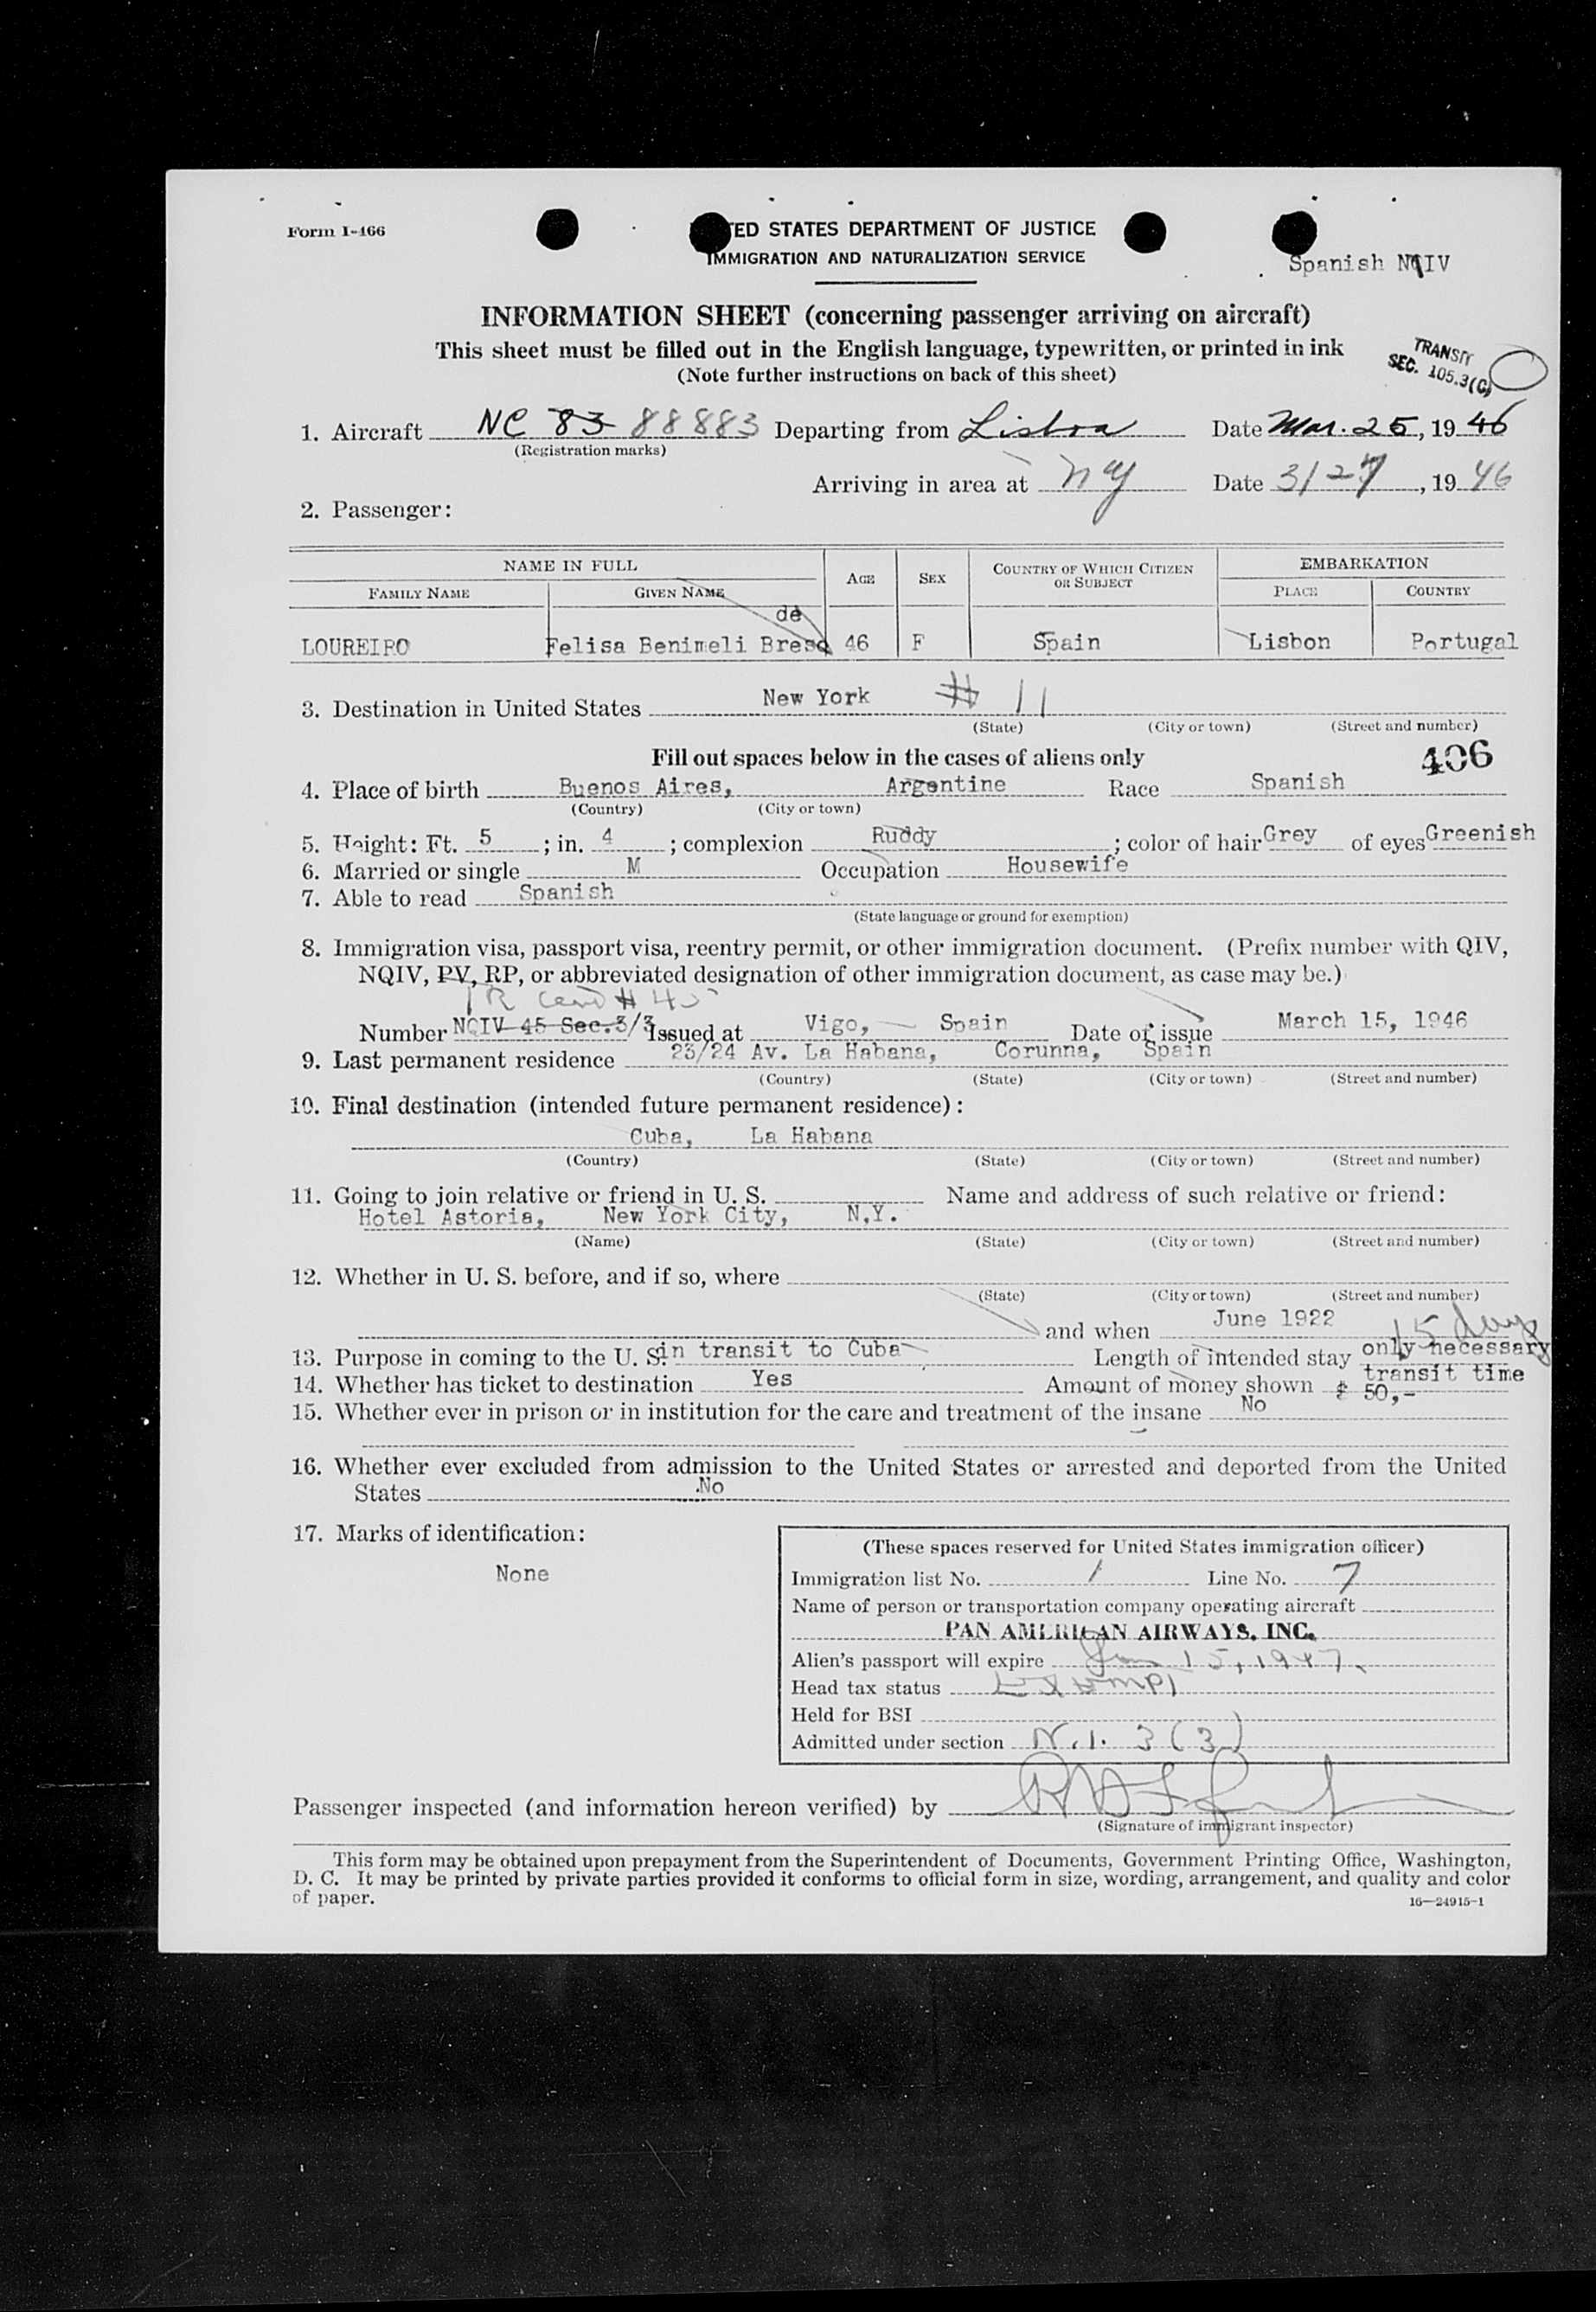 Form I-466
TED STATES DEPARTMENT OF JUSTICE
IMMIGRATION AND NATURALIZATION SERVICE
Spanish NQIV
INFORMATION SHEET (concerning passenger arriving on aircraft)
This sheet must be filled out in the English language, typewritten, or printed in ink
(Note further instructions on back of this sheet)
TRANSIT
SEC. 105.3(C)
1. Aircraft NC 83 88883 Departing from Lisboa Date Mar. 25, 1946
(Registration marks)
Arriving in area at NY Date 3/27, 1946
2. Passenger:
NAME IN FULL AGE SEX COUNTRY OF WHICH CITIZEN OR SUBJECT EMBARKATION
FAMILY NAME GIVEN NAME PLACE COUNTRY
de
LOUREIRO Felisa Benimeli Bresd 46 F Spain Lisbon Portugal
3. Destination in United States New York # 11
(State) (City or town) (Street and number)
Fill out spaces below in the cases of aliens only
406
4. Place of birth Buenos Aires, Argentine Race Spanish
(Country) (City or town)
5. Height: Ft. 5 ; in. 4 ; complexion Ruddy ; color of hair Grey of eyes Greenish
6. Married or single M Occupation Housewife
7. Able to read Spanish
(State language or ground for exemption)
8. Immigration visa, passport visa, reentry permit, or other immigration document. (Prefix number with QIV,
NQIV, PV, RP, or abbreviated designation of other immigration document, as case may be.)
TR Card # 45
Number NQIV 45 Sec.3/3 Issued at Vigo, Spain Date of issue March 15, 1946
9. Last permanent residence 23/24 Av. La Habana, Corunna, Spain
(Country) (State) (City or town) (Street and number)
10. Final destination (intended future permanent residence):
Cuba, La Habana
(Country) (State) (City or town) (Street and number)
11. Going to join relative or friend in U. S. Name and address of such relative or friend:
Hotel Astoria, New York City, N.Y.
(Name) (State) (City or town) (Street and number)
12. Whether in U. S. before, and if so, where
(State) (City or town) (Street and number)
and when June 1922
15 days
13. Purpose in coming to the U. S. in transit to Cuba Length of intended stay only necessary
transit time
14. Whether has ticket to destination Yes Amount of money shown $ 50,-
15. Whether ever in prison or in institution for the care and treatment of the insane No
16. Whether ever excluded from admission to the United States or arrested and deported from the United
States No
17. Marks of identification:
None
(These spaces reserved for United States immigration officer)
Immigration list No. 1 Line No. 7
Name of person or transportation company operating aircraft
PAN AMERICAN AIRWAYS, INC.
Alien's passport will expire Jan 15, 1947.
Head tax status Exempt
Held for BSI
Admitted under section N.I. 3(3)
Passenger inspected (and information hereon verified) by
(Signature of immigrant inspector)
This form may be obtained upon prepayment from the Superintendent of Documents, Government Printing Office, Washington,
D. C. It may be printed by private parties provided it conforms to official form in size, wording, arrangement, and quality and color
of paper.
16—24915-1